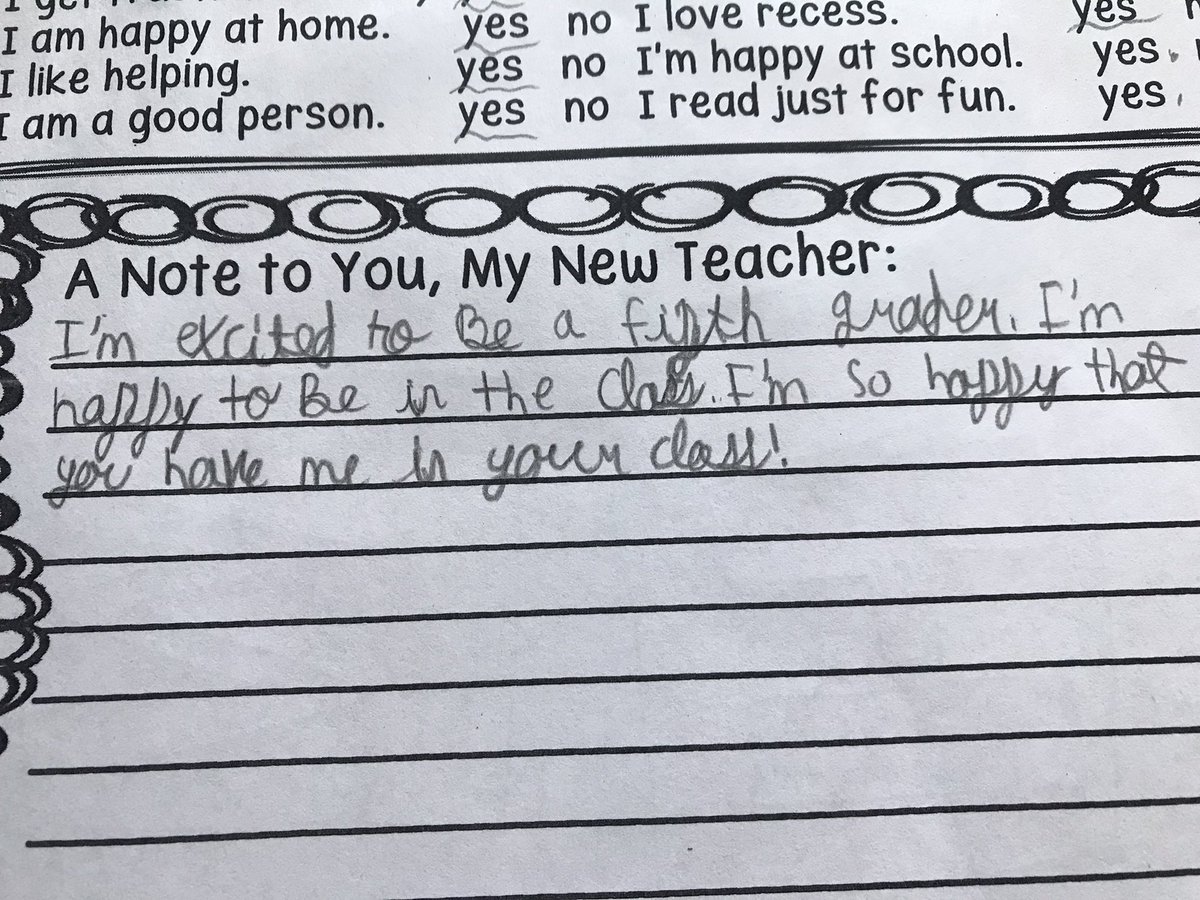 I am happy at home. yes no I love recess. yes
I like helping. yes no I'm happy at school. yes
I am a good person. yes no I read just for fun. yes
A Note to You, My New Teacher:
I'm excited to Be a fifth grader. I'm
happy to Be in the class. I'm so happy that
you have me in your class!